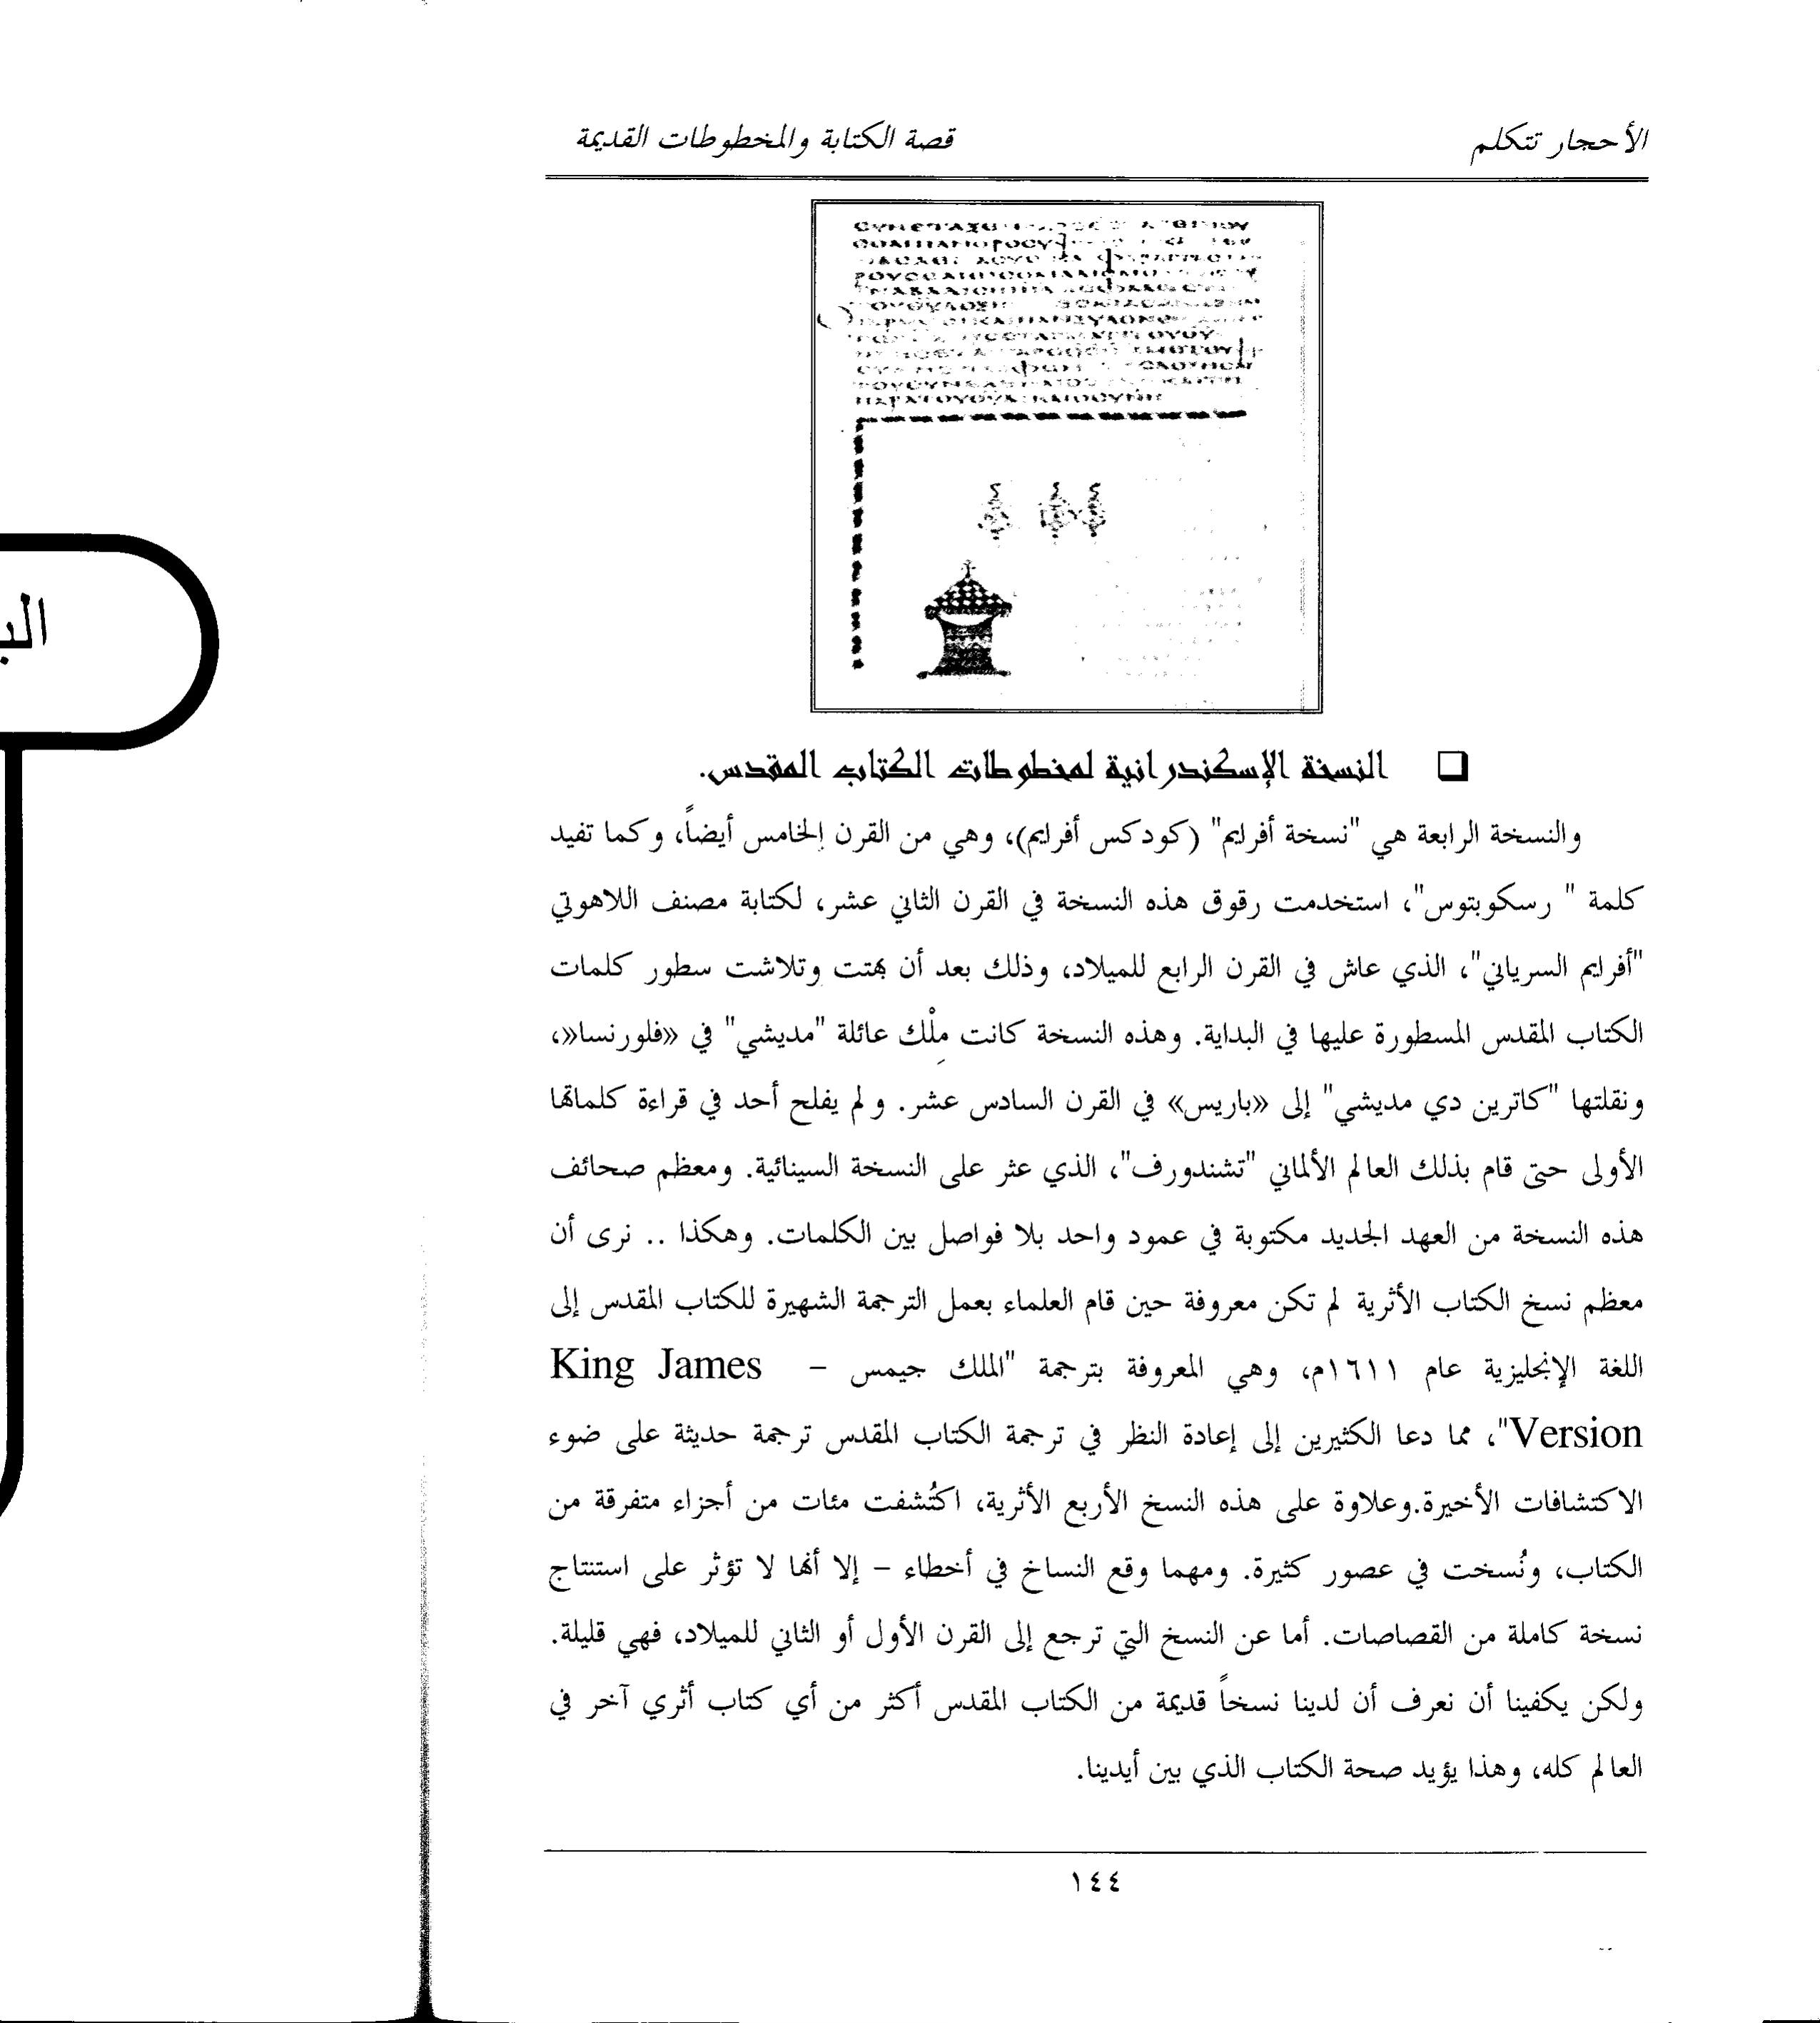 الأحجار تتكلم
قصة الكتابة والمخطوطات القديمة
❑ النسخة الإسكندرانية لمخطوطات الكتاب المقدس.
والنسخة الرابعة هي "نسخة أفرايم" (كودكس أفرايم)، وهي من القرن الخامس أيضاً، وكما تفيد
كلمة " رسكوبتوس"، استخدمت رقوق هذه النسخة في القرن الثاني عشر، لكتابة مصنف اللاهوتي
"أفرايم السرياني"، الذي عاش في القرن الرابع للميلاد، وذلك بعد أن بهتت وتلاشت سطور كلمات
الكتاب المقدس المسطورة عليها في البداية. وهذه النسخة كانت مِلْك عائلة "مديشي" في «فلورنسا«،
ونقلتها "كاترين دي مديشي" إلى «باريس» في القرن السادس عشر. ولم يفلح أحد في قراءة كلماتها
الأولى حتى قام بذلك العالم الألماني "تشندورف"، الذي عثر على النسخة السينائية. ومعظم صحائف
هذه النسخة من العهد الجديد مكتوبة في عمود واحد بلا فواصل بين الكلمات. وهكذا .. نرى أن
معظم نسخ الكتاب الأثرية لم تكن معروفة حين قام العلماء بعمل الترجمة الشهيرة للكتاب المقدس إلى
اللغة الإنجليزية عام ١٦١١م، وهي المعروفة بترجمة "الملك جيمس – King James
Version"، مما دعا الكثيرين إلى إعادة النظر في ترجمة الكتاب المقدس ترجمة حديثة على ضوء
الاكتشافات الأخيرة.وعلاوة على هذه النسخ الأربع الأثرية، اكتُشفت مئات من أجزاء متفرقة من
الكتاب، ونُسخت في عصور كثيرة. ومهما وقع النساخ في أخطاء – إلا أنها لا تؤثر على استنتاج
نسخة كاملة من القصاصات. أما عن النسخ التي ترجع إلى القرن الأول أو الثاني للميلاد، فهي قليلة.
ولكن يكفينا أن نعرف أن لدينا نسخاً قديمة من الكتاب المقدس أكثر من أي كتاب أثري آخر في
العالم كله، وهذا يؤيد صحة الكتاب الذي بين أيدينا.
١٤٤